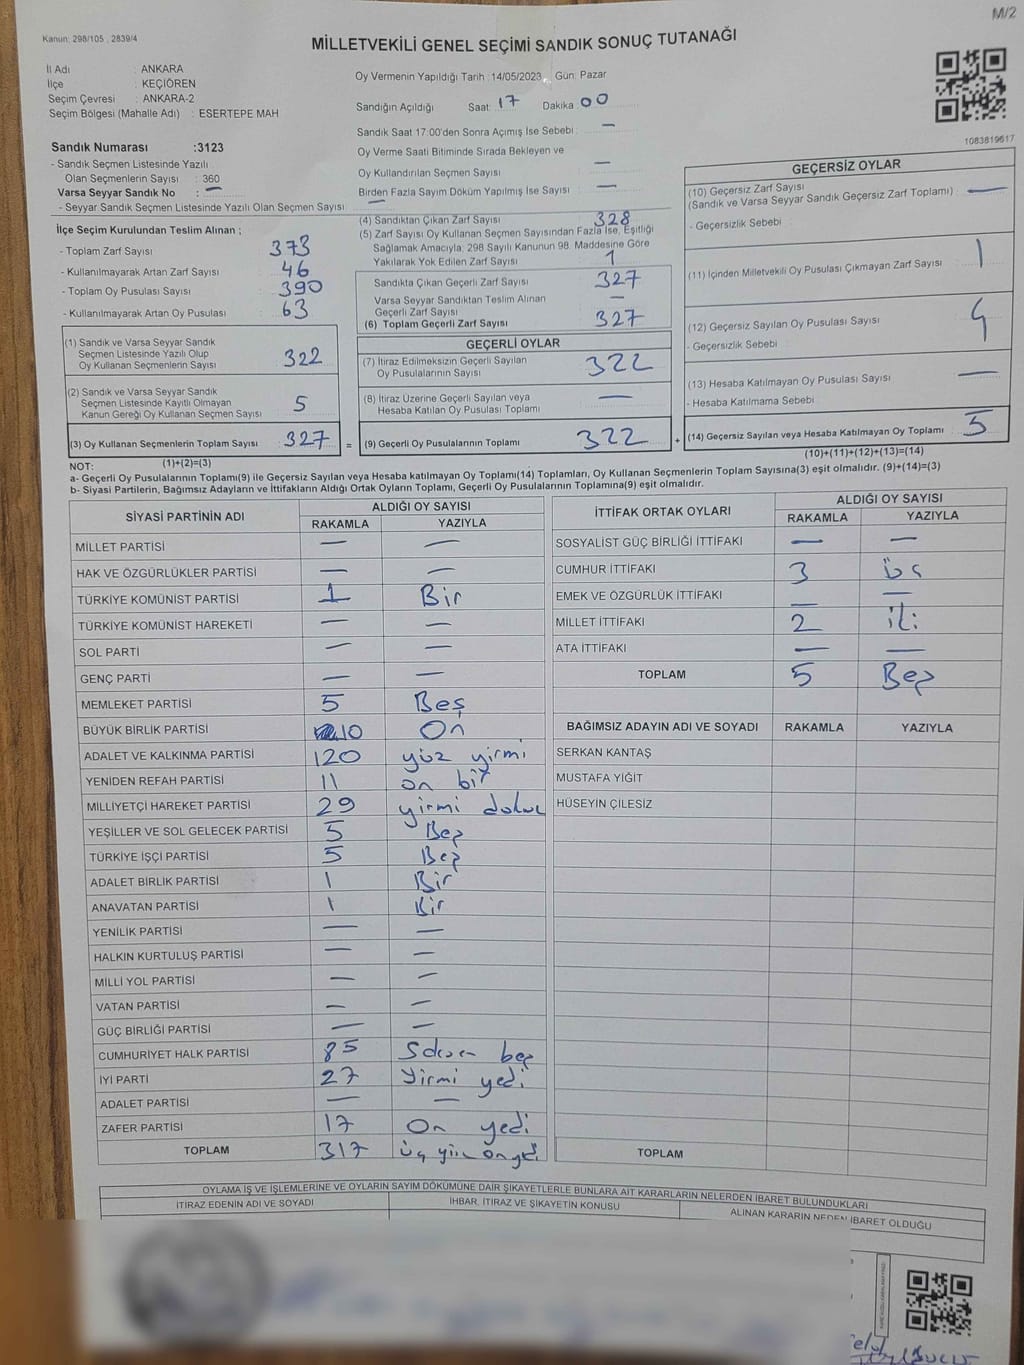 M/2
Kanun: 298/105 , 2839/4
MİLLETVEKİLİ GENEL SEÇİMİ SANDIK SONUÇ TUTANAĞI
İl Adı : ANKARA
İlçe : KEÇİÖREN
Seçim Çevresi : ANKARA-2
Seçim Bölgesi (Mahalle Adı) : ESERTEPE MAH
Oy Vermenin Yapıldığı Tarih : 14/05/2023 , Gün: Pazar
Sandığın Açıldığı Saat: 17 Dakika 00
Sandık Saat 17:00'den Sonra Açımış İse Sebebi : —
Oy Verme Saati Bitiminde Sırada Bekleyen ve
Oy Kullandırılan Seçmen Sayısı : —
Birden Fazla Sayım Döküm Yapılmış İse Sayısı : —
1083819617
Sandık Numarası :3123
- Sandık Seçmen Listesinde Yazılı
Olan Seçmenlerin Sayısı : 360
Varsa Seyyar Sandık No : —
- Seyyar Sandık Seçmen Listesinde Yazılı Olan Seçmen Sayısı : —
İlçe Seçim Kurulundan Teslim Alınan ;
- Toplam Zarf Sayısı : 373
- Kullanılmayarak Artan Zarf Sayısı : 46
- Toplam Oy Pusulası Sayısı : 390
- Kullanılmayarak Artan Oy Pusulası : 63
(1) Sandık ve Varsa Seyyar Sandık
Seçmen Listesinde Yazılı Olup
Oy Kullanan Seçmenlerin Sayısı : 322
(2) Sandık ve Varsa Seyyar Sandık
Seçmen Listesinde Kayıtlı Olmayan
Kanun Gereği Oy Kullanan Seçmen Sayısı : 5
(3) Oy Kullanan Seçmenlerin Toplam Sayısı : 327 =
(1)+(2)=(3)
(4) Sandıktan Çıkan Zarf Sayısı : 328
(5) Zarf Sayısı Oy Kullanan Seçmen Sayısından Fazla İse, Eşitliği
Sağlamak Amacıyla, 298 Sayılı Kanunun 98. Maddesine Göre
Yakılarak Yok Edilen Zarf Sayısı : 1
Sandıkta Çıkan Geçerli Zarf Sayısı : 327
Varsa Seyyar Sandıktan Teslim Alınan
Geçerli Zarf Sayısı : —
(6) Toplam Geçerli Zarf Sayısı : 327
GEÇERLİ OYLAR
(7) İtiraz Edilmeksizin Geçerli Sayılan
Oy Pusulalarının Sayısı : 322
(8) İtiraz Üzerine Geçerli Sayılan veya
Hesaba Katılan Oy Pusulası Toplamı : —
(9) Geçerli Oy Pusulalarının Toplamı : 322 +
GEÇERSİZ OYLAR
(10) Geçersiz Zarf Sayısı
(Sandık ve Varsa Seyyar Sandık Geçersiz Zarf Toplamı) : —
- Geçersizlik Sebebi :
(11) İçinden Milletvekili Oy Pusulası Çıkmayan Zarf Sayısı : 1
(12) Geçersiz Sayılan Oy Pusulası Sayısı : 4
- Geçersizlik Sebebi :
(13) Hesaba Katılmayan Oy Pusulası Sayısı : —
- Hesaba Katılmama Sebebi :
(14) Geçersiz Sayılan veya Hesaba Katılmayan Oy Toplamı : 5
(10)+(11)+(12)+(13)=(14)
NOT:
a- Geçerli Oy Pusulalarının Toplamı(9) ile Geçersiz Sayılan veya Hesaba katılmayan Oy Toplamı(14) Toplamları, Oy Kullanan Seçmenlerin Toplam Sayısına(3) eşit olmalıdır. (9)+(14)=(3)
b- Siyasi Partilerin, Bağımsız Adayların ve İttifakların Aldığı Ortak Oyların Toplamı, Geçerli Oy Pusulalarının Toplamına(9) eşit olmalıdır.
SİYASİ PARTİNİN ADI ALDIĞI OY SAYISI
RAKAMLA YAZIYLA
MİLLET PARTİSİ — —
HAK VE ÖZGÜRLÜKLER PARTİSİ — —
TÜRKİYE KOMÜNİST PARTİSİ 1 Bir
TÜRKİYE KOMÜNİST HAREKETİ — —
SOL PARTİ — —
GENÇ PARTİ — —
MEMLEKET PARTİSİ 5 Beş
BÜYÜK BİRLİK PARTİSİ 10 On
ADALET VE KALKINMA PARTİSİ 120 yüz yirmi
YENİDEN REFAH PARTİSİ 11 on bir
MİLLİYETÇİ HAREKET PARTİSİ 29 yirmi dokuz
YEŞİLLER VE SOL GELECEK PARTİSİ 5 Beş
TÜRKİYE İŞÇİ PARTİSİ 5 Beş
ADALET BİRLİK PARTİSİ 1 Bir
ANAVATAN PARTİSİ 1 Bir
YENİLİK PARTİSİ — —
HALKIN KURTULUŞ PARTİSİ — —
MİLLİ YOL PARTİSİ — —
VATAN PARTİSİ — —
GÜÇ BİRLİĞİ PARTİSİ — —
CUMHURİYET HALK PARTİSİ 85 Seksen beş
İYİ PARTİ 27 Yirmi yedi
ADALET PARTİSİ — —
ZAFER PARTİSİ 17 On yedi
TOPLAM 317 üç yüz on yedi
İTTİFAK ORTAK OYLARI ALDIĞI OY SAYISI
RAKAMLA YAZIYLA
SOSYALİST GÜÇ BİRLİĞİ İTTİFAKI — —
CUMHUR İTTİFAKI 3 üç
EMEK VE ÖZGÜRLÜK İTTİFAKI — —
MİLLET İTTİFAKI 2 iki
ATA İTTİFAKI — —
TOPLAM 5 Beş
BAĞIMSIZ ADAYIN ADI VE SOYADI RAKAMLA YAZIYLA
SERKAN KANTAŞ
MUSTAFA YİĞİT
HÜSEYİN ÇİLESİZ
TOPLAM
OYLAMA İŞ VE İŞLEMLERİNE VE OYLARIN SAYIM DÖKÜMÜNE DAİR ŞİKAYETLERLE BUNLARA AİT KARARLARIN NELERDEN İBARET BULUNDUKLARI
İTİRAZ EDENİN ADI VE SOYADI İHBAR, İTİRAZ VE ŞİKAYETİN KONUSU ALINAN KARARIN NEDEN İBARET OLDUĞU